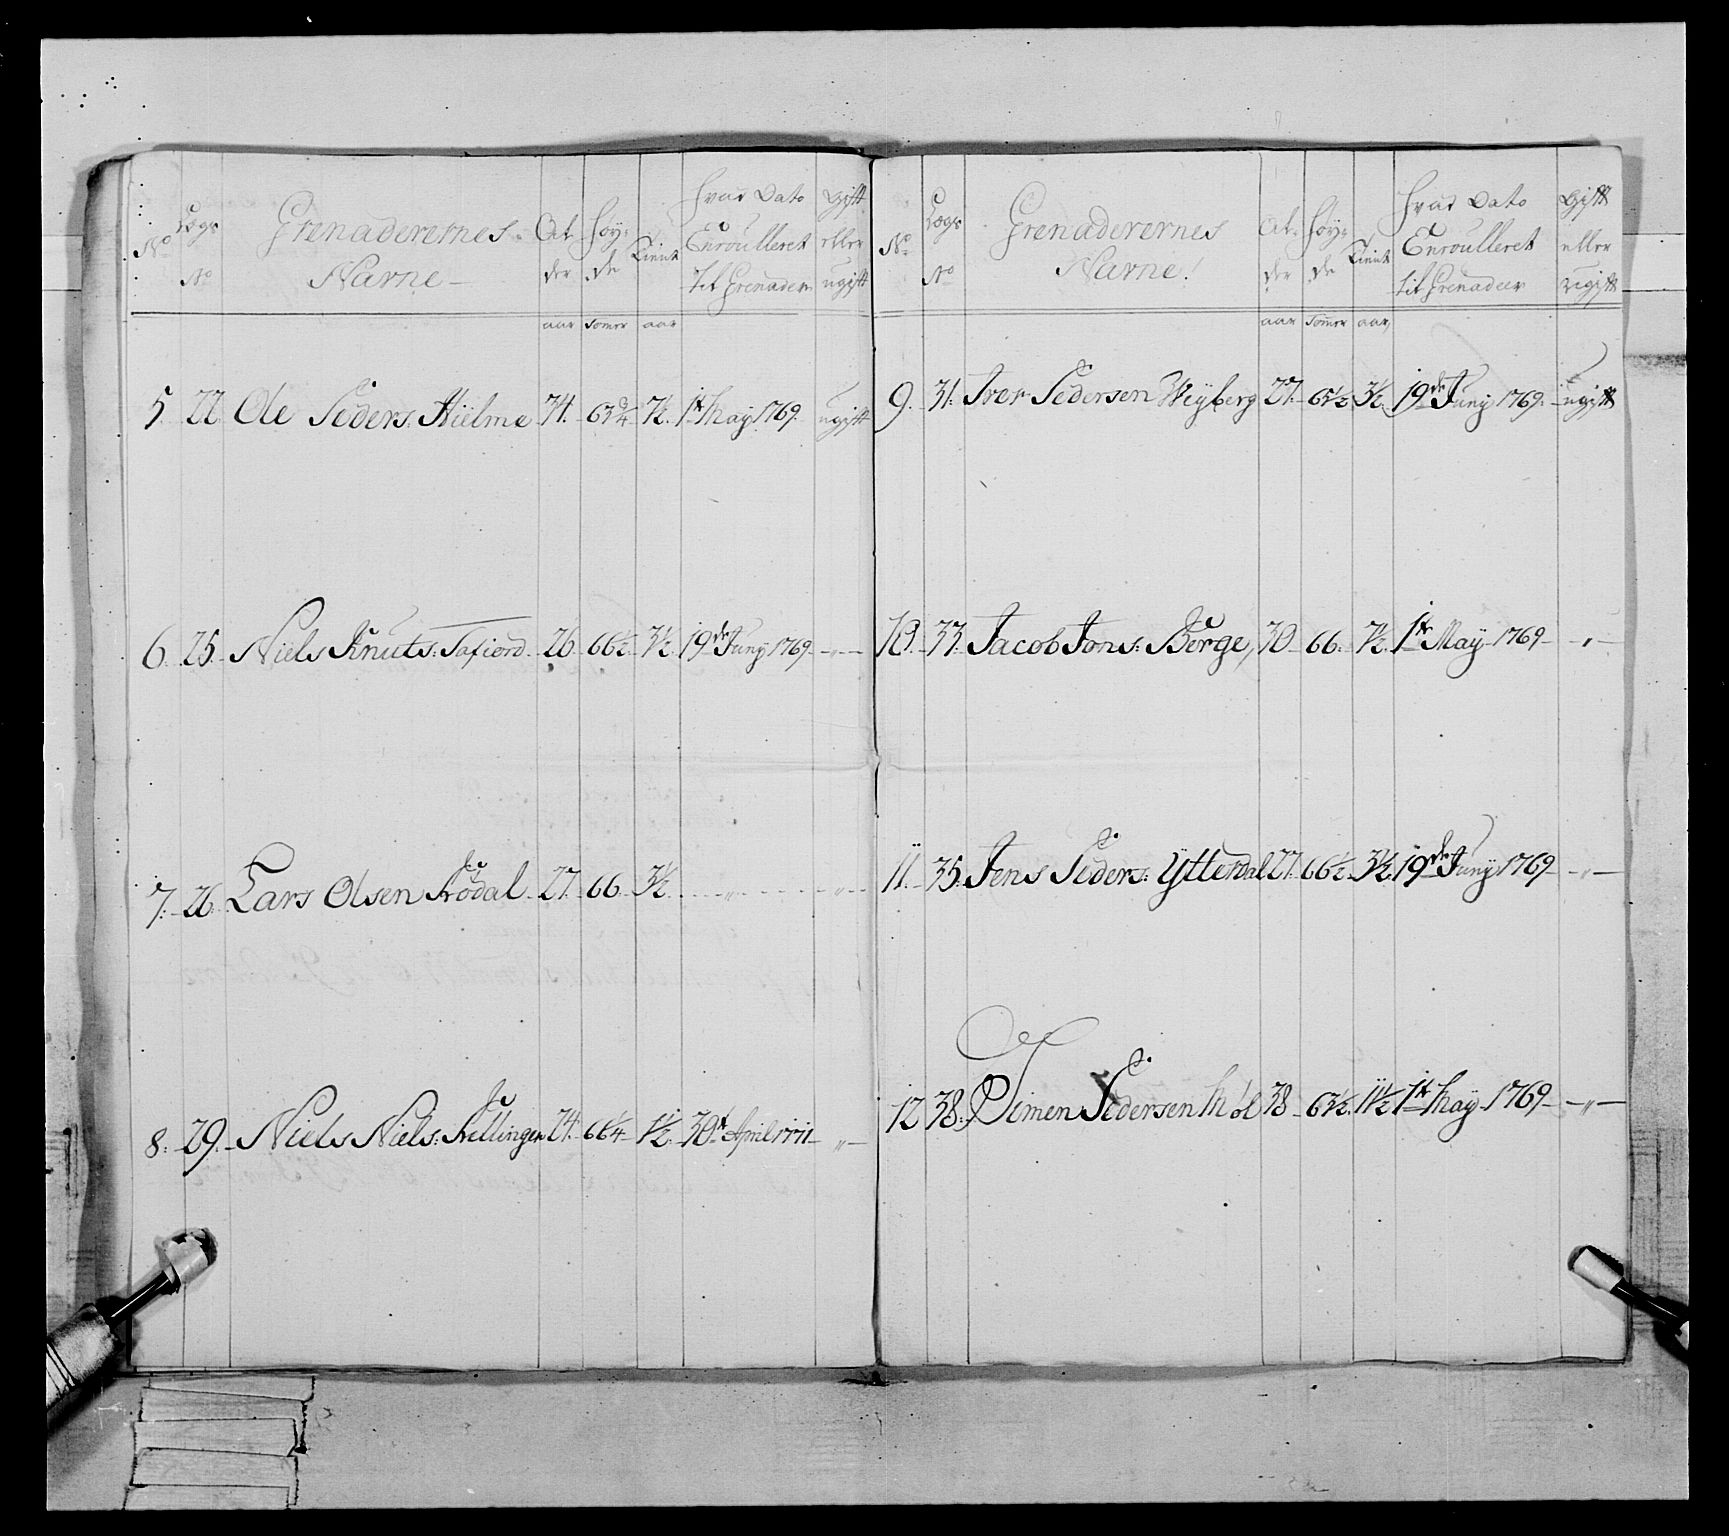 No Lægs No Grenaderernes Navne Al-der Høy-de Tient Hvad Dato Enroulleret til Grenadeer Gift eller ugift
aar tomer aar
5. 22 Ole Peders: Hiilme 34. 63¾ 7½. 1te May 1769. ugift
6. 25. Niels Knuts: Tafiord 26. 66½ 3½ 19de Juny 1769 — „ —
7. 26. Lars Olsen Frødal 27. 66 3½ „ „
8. 29. Niels Niels: Kellingen 24. 66¼ 1½ 30t April 1771 „
No Lægs No Grenaderernes Navne! Al-der Høy-de Tient Hvad Dato Enroulleret til Grenadeer Gift eller ugift
aar tomer aar
9. 31. Iver Pedersen Weyberg 27. 3½ 19de Juny 1769. ugift
10. 33. Jacob Jons: Berge, 30 66. 7½. 1te May 1769 — „ —
11. 35. Jens Peders: Ytterdal 27. 66½. 3½. 19de Juny 1769 — „ —
12 38. Simen Pedersen 38 63½. 11½ 1te May 1769 — „ —